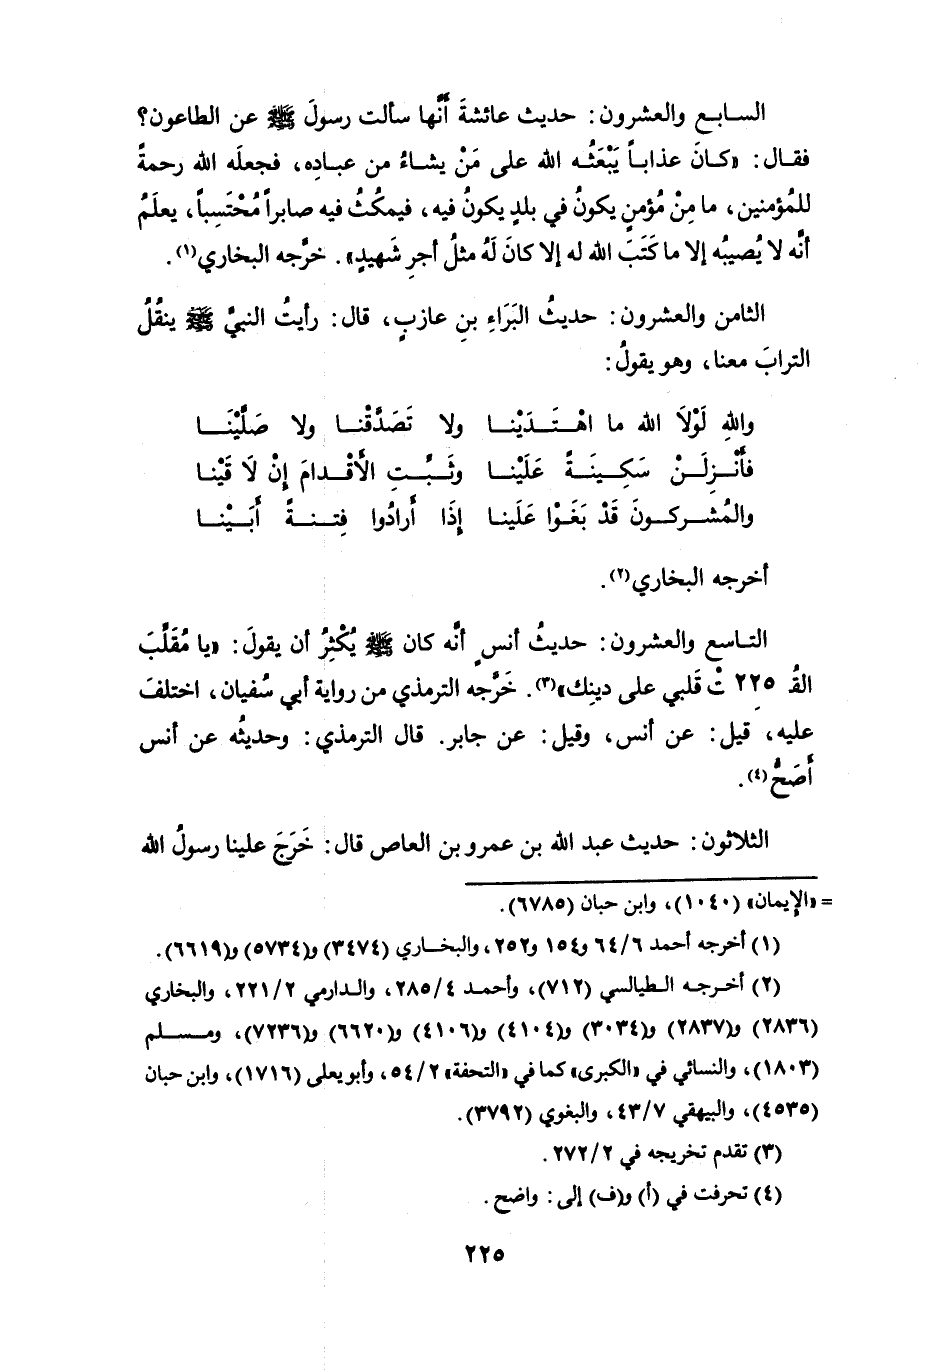 السابع والعشرون: حديث عائشةَ أنَّها سألت رسولَ ﷺ عن الطاعون؟
فقال: «كانَ عذاباً يَبْعَثُه الله على مَنْ يشاءُ من عباده، فجعلَه الله رحمةً
للمُؤمنين، ما مِنْ مُؤمنٍ يكونُ في بلدٍ يكونُ فيه، فيمكُثُ فيه صابراً مُحْتَسِباً، يعلَمُ
أنَّه لا يُصيبُه إلا ما كَتَبَ الله له إلا كانَ لَهُ مثلُ أجرِ شَهيدٍ». خرَّجه البخاري(١).
الثامن والعشرون: حديثُ البَرَاءِ بنِ عازبٍ، قال: رأيتُ النبيَّ ﷺ ينقُلُ
الترابَ معنا، وهو يقولُ:
واللهِ لَوْلاَ الله ما اهْتَدَيْنا ولا تَصَدَّقْنا ولا صَلَّيْنَا
فأَنْزِلَنْ سَكِينَةً عَلَيْنا وثَبِّتِ الأَقْدامَ إِنْ لاَ قَيْنا
والمُشركونَ قَدْ بَغَوْا عَلَينا إذَا أرادُوا فِتنةً أَبَيْنا
أخرجه البخاري(٢).
التاسع والعشرون: حديثُ أنسٍ أنَّه كان ﷺ يُكْثِرُ أن يقولَ: «يا مُقَلِّبَ
القُ ٢٢٥ تْ قَلبي على دينِك»(٣). خَرَّجه الترمذي من رواية أبي سُفيان، اختلفَ
عليه، قيل: عن أنس، وقيل: عن جابر. قال الترمذي: وحديثُه عن أنس
أَصَحُّ(٤).
الثلاثون: حديث عبد الله بن عمرو بن العاص قال: خَرَجَ علينا رسولُ الله
= «الإيمان» (١٠٤٠)، وابن حبان (٦٧٨٥).
(١) أخرجه أحمد ٦٤/٦ و١٥٤ و٢٥٢، والبخاري (٣٤٧٤) و(٥٧٣٤) و(٦٦١٩).
(٢) أخرجه الطيالسي (٧١٢)، وأحمد ٢٨٥/٤، والدارمي ٢٢١/٢، والبخاري
(٢٨٣٦) و(٢٨٣٧) و(٣٠٣٤) و(٤١٠٤) و(٤١٠٦) و(٦٦٢٠) و(٧٢٣٦)، ومسلم
(١٨٠٣)، والنسائي في «الكبرى» كما في «التحفة» ٥٤/٢، وأبو يعلى (١٧١٦)، وابن حبان
(٤٥٣٥)، والبيهقي ٤٣/٧، والبغوي (٣٧٩٢).
(٣) تقدم تخريجه في ٢٧٢/٢.
(٤) تحرفت في (أ) و(ف) إلى: واضح.
٢٢٥